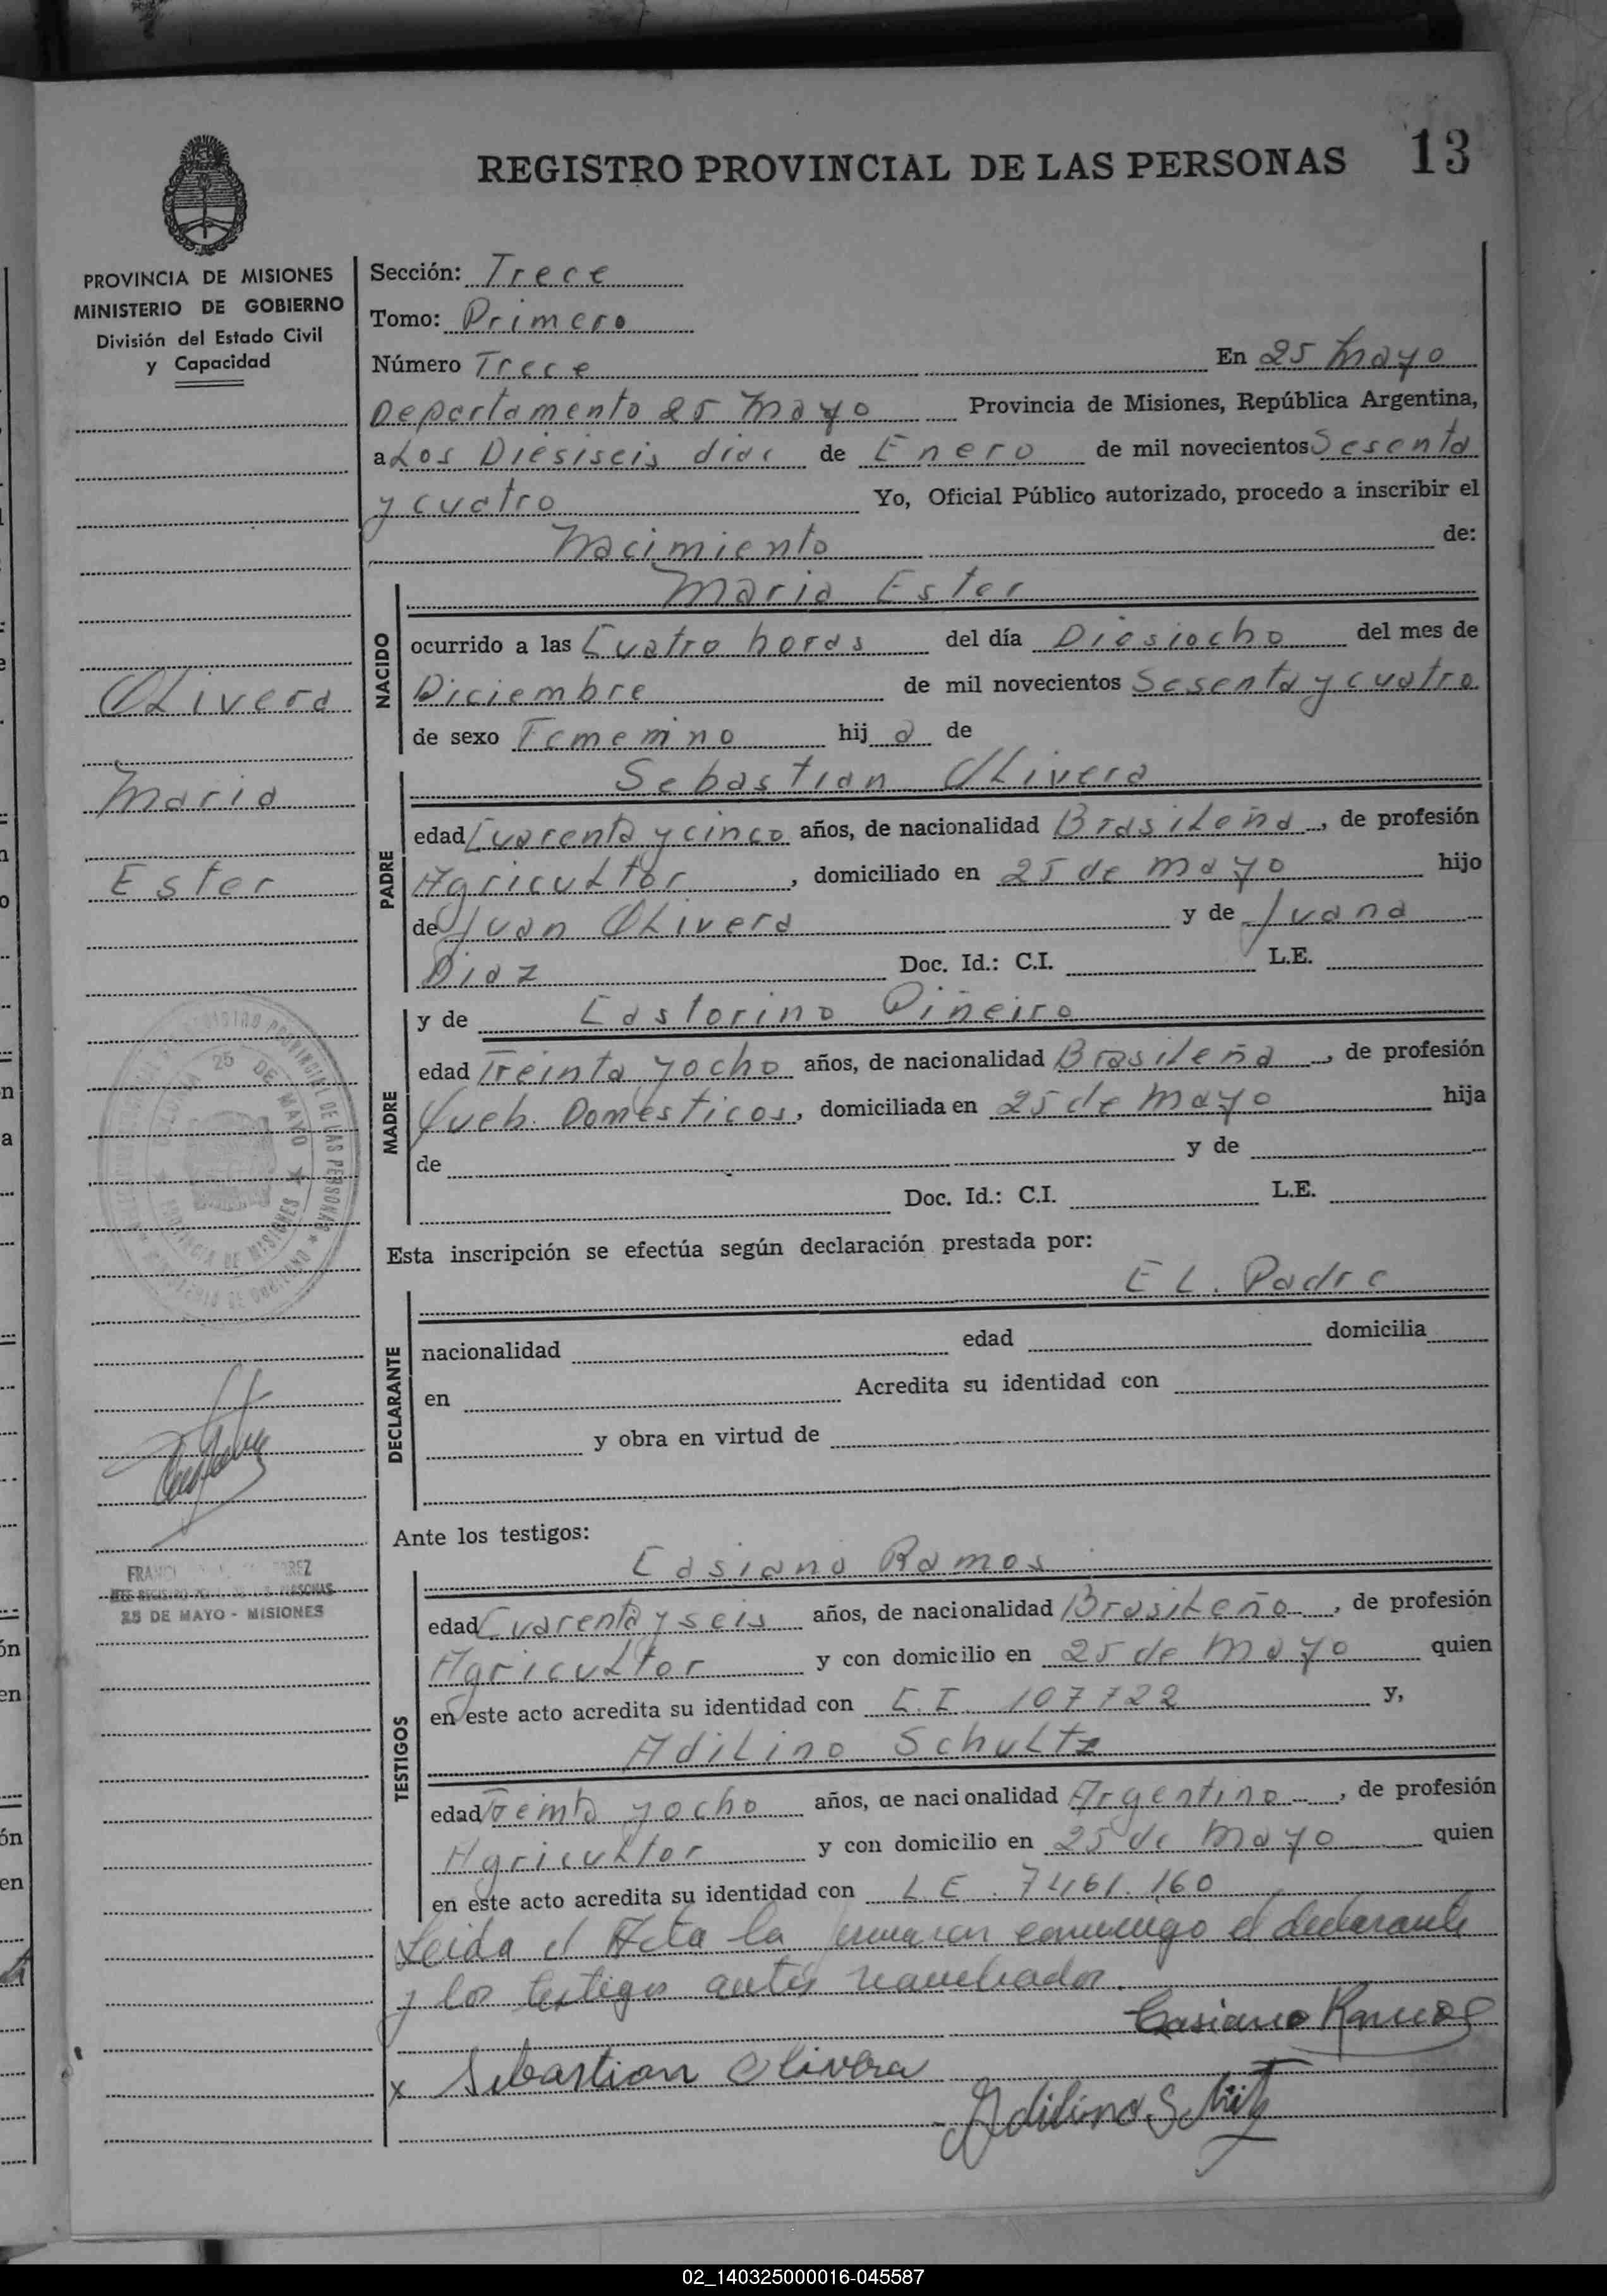 REGISTRO PROVINCIAL DE LAS PERSONAS 13
PROVINCIA DE MISIONES
MINISTERIO DE GOBIERNO
División del Estado Civil
y Capacidad
Sección: Trece
Tomo: Primero
Número Trece En 25 Mayo
Departamento 25 Mayo Provincia de Misiones, República Argentina,
a Los Diesiseis dias de Enero de mil novecientos Sesenta
y cuatro Yo, Oficial Público autorizado, procedo a inscribir el
Nacimiento de:
Olivera
Maria
Ester
NACIDO
Maria Ester
ocurrido a las Cuatro horas del día Diesiocho del mes de
Diciembre de mil novecientos Sesenta y cuatro
de sexo Femenino hij a de
PADRE
Sebastian Olivera
edad Cuarenta y cinco años, de nacionalidad Brasileña, de profesión
Agricultor, domiciliado en 25 de Mayo hijo
de Juan Olivera y de Juana
Diaz Doc. Id.: C.I. L.E.
MADRE
y de Castorino Piñeiro
edad Treinta y ocho años, de nacionalidad Brasileña, de profesión
Domesticos, domiciliada en 25 de Mayo hija
de y de
Doc. Id.: C.I. L.E.
Esta inscripción se efectúa según declaración prestada por:
DECLARANTE
EL. Padre
nacionalidad edad domicilia
en Acredita su identidad con
y obra en virtud de
COLONIA 25 DE MAYO
PROVINCIA DE MISIONES
REGISTRO PROVINCIAL DE LAS PERSONAS
25 DE MAYO - MISIONES
Ante los testigos:
TESTIGOS
Casiano Ramos
edad Cuarenta y seis años, de nacionalidad Brasileño, de profesión
Agricultor y con domicilio en 25 de Mayo quien
en este acto acredita su identidad con C.I. 107722 y,
Adilino Schultz
edad Treinta y ocho años, de nacionalidad Argentino, de profesión
Agricultor y con domicilio en 25 de Mayo quien
en este acto acredita su identidad con L.E. 7461.160
Leida el Acta la firmaron conmigo el declarante
y los testigos antes nombrados.
Casiano Ramos
x Sebastian Olivera
Adilino
02_140325000016-045587